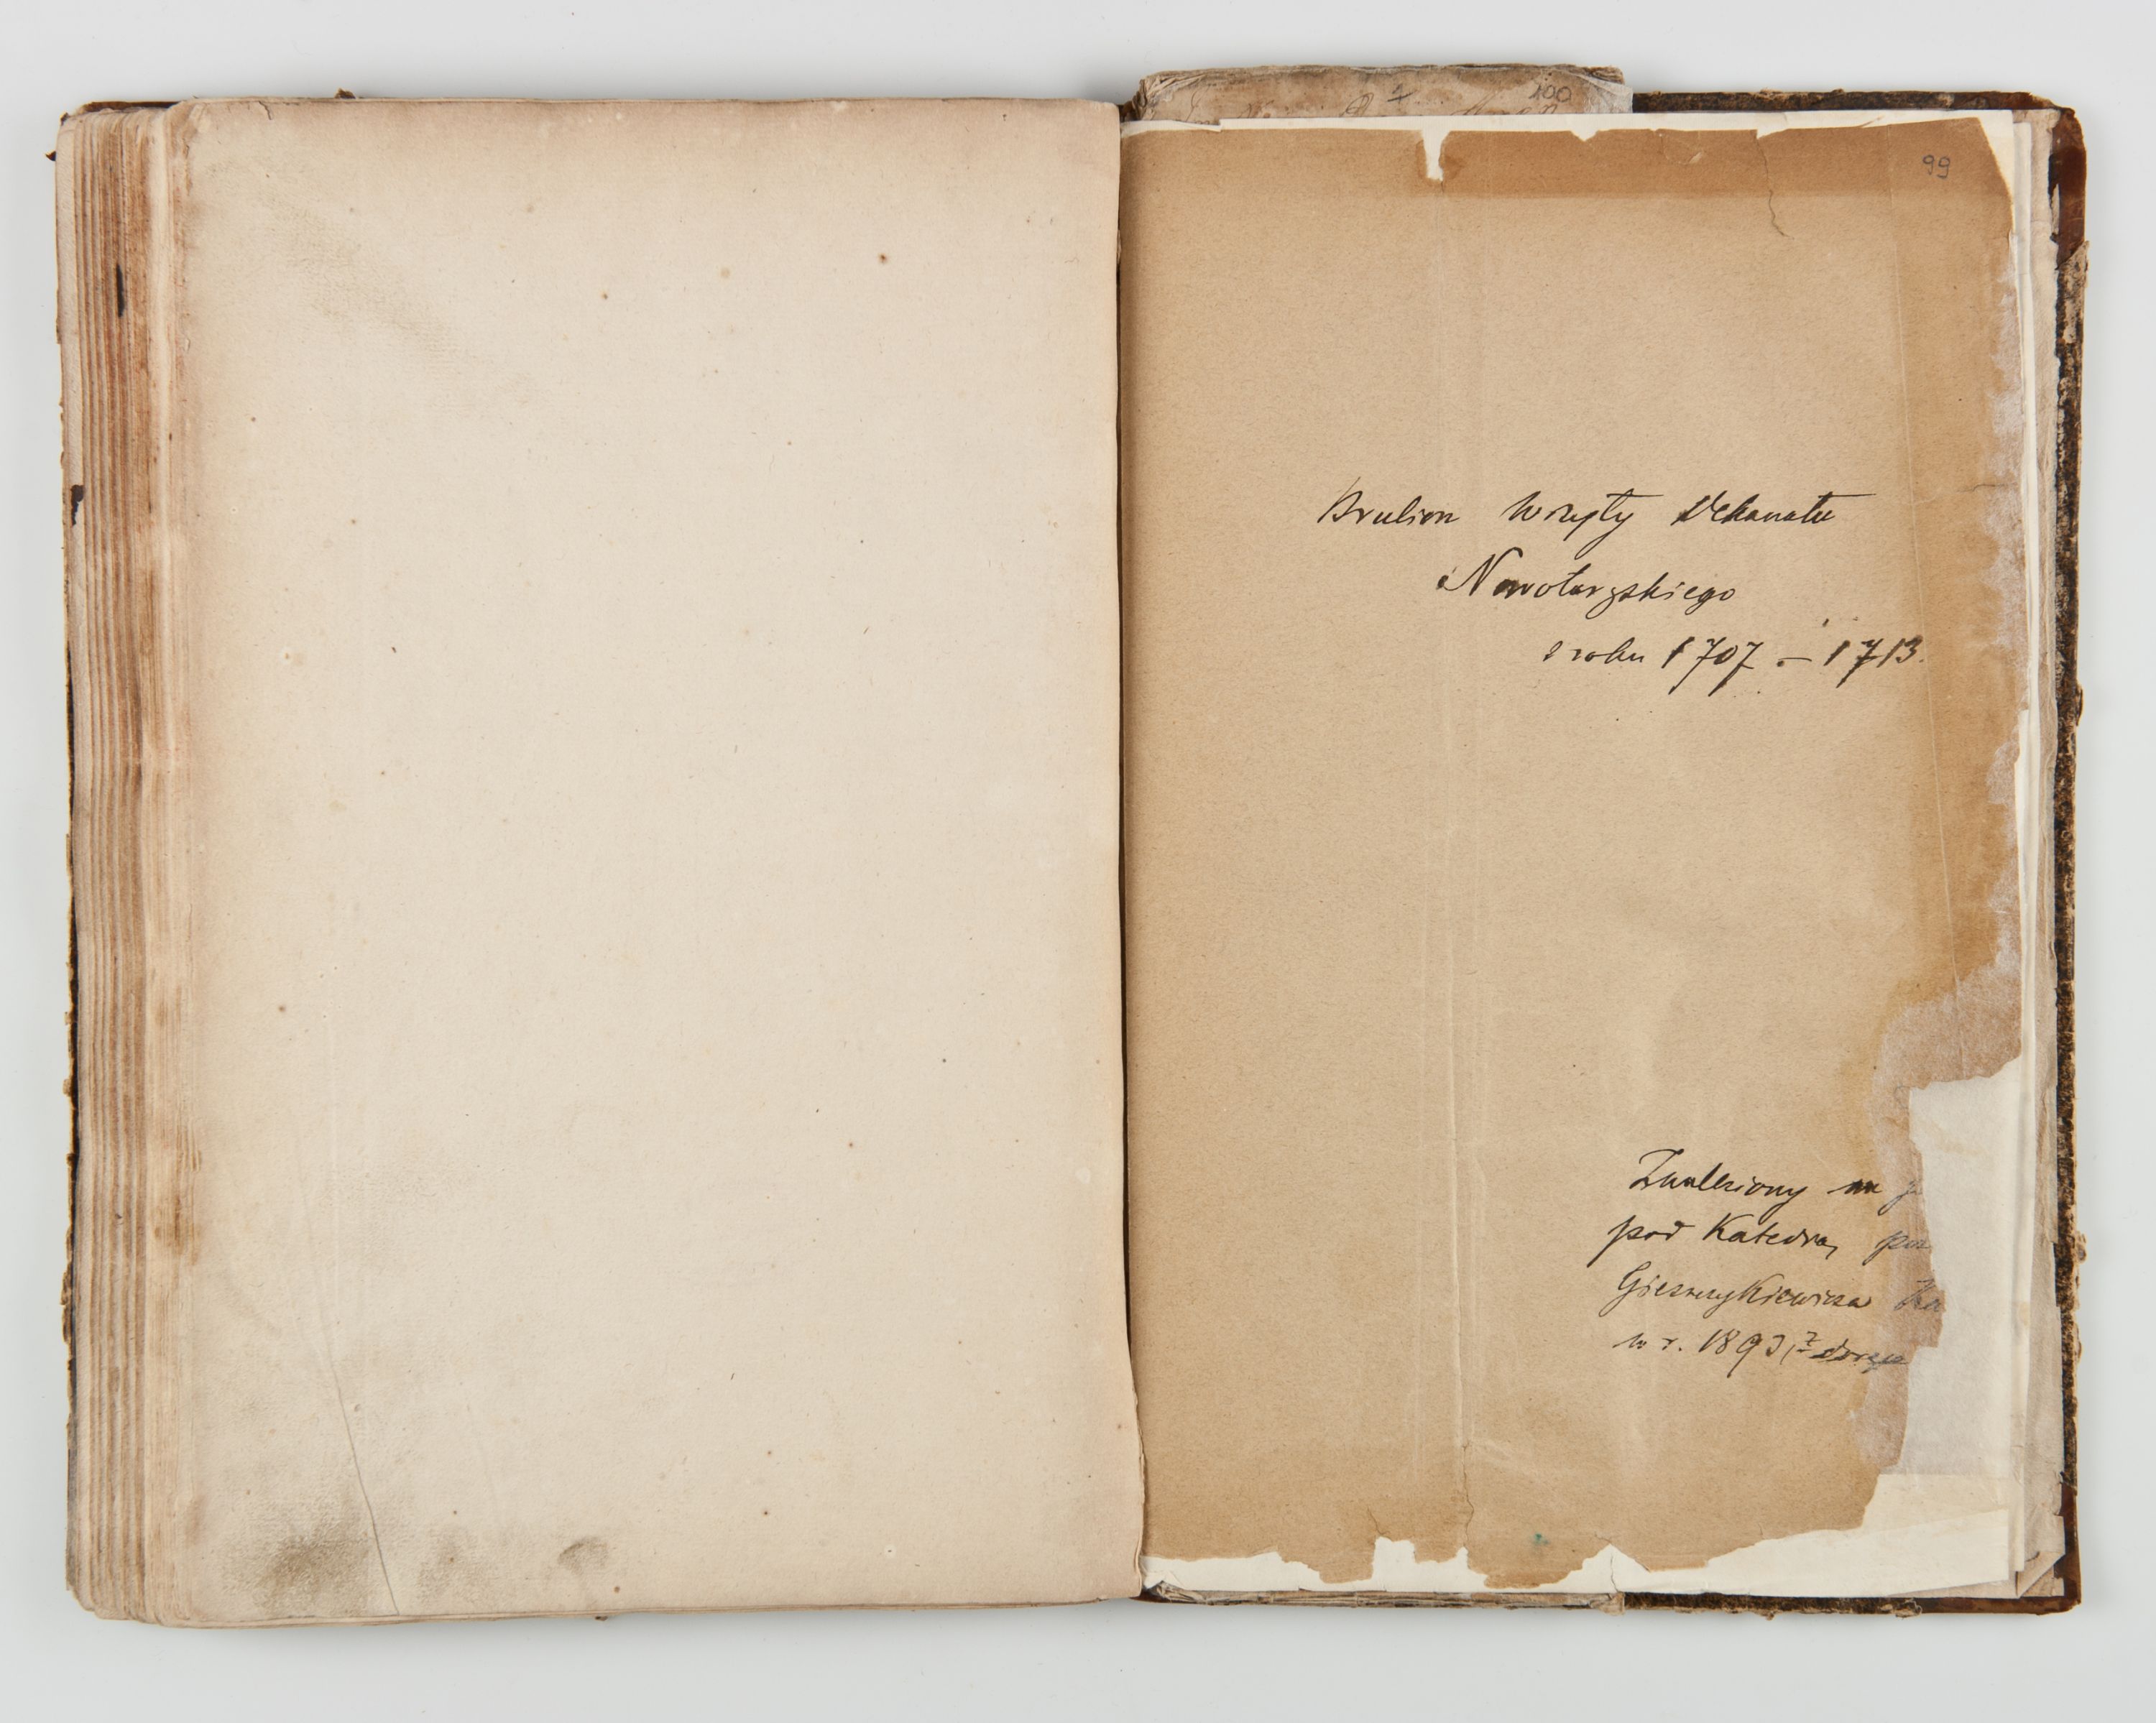 100
99
Brulion Wizyty Dekanatu
Nowotarskiego
z roku 1707 – 1713.
Znaleziony na
pod Katedrą
Gieszczykiewicza
w r. 1893,